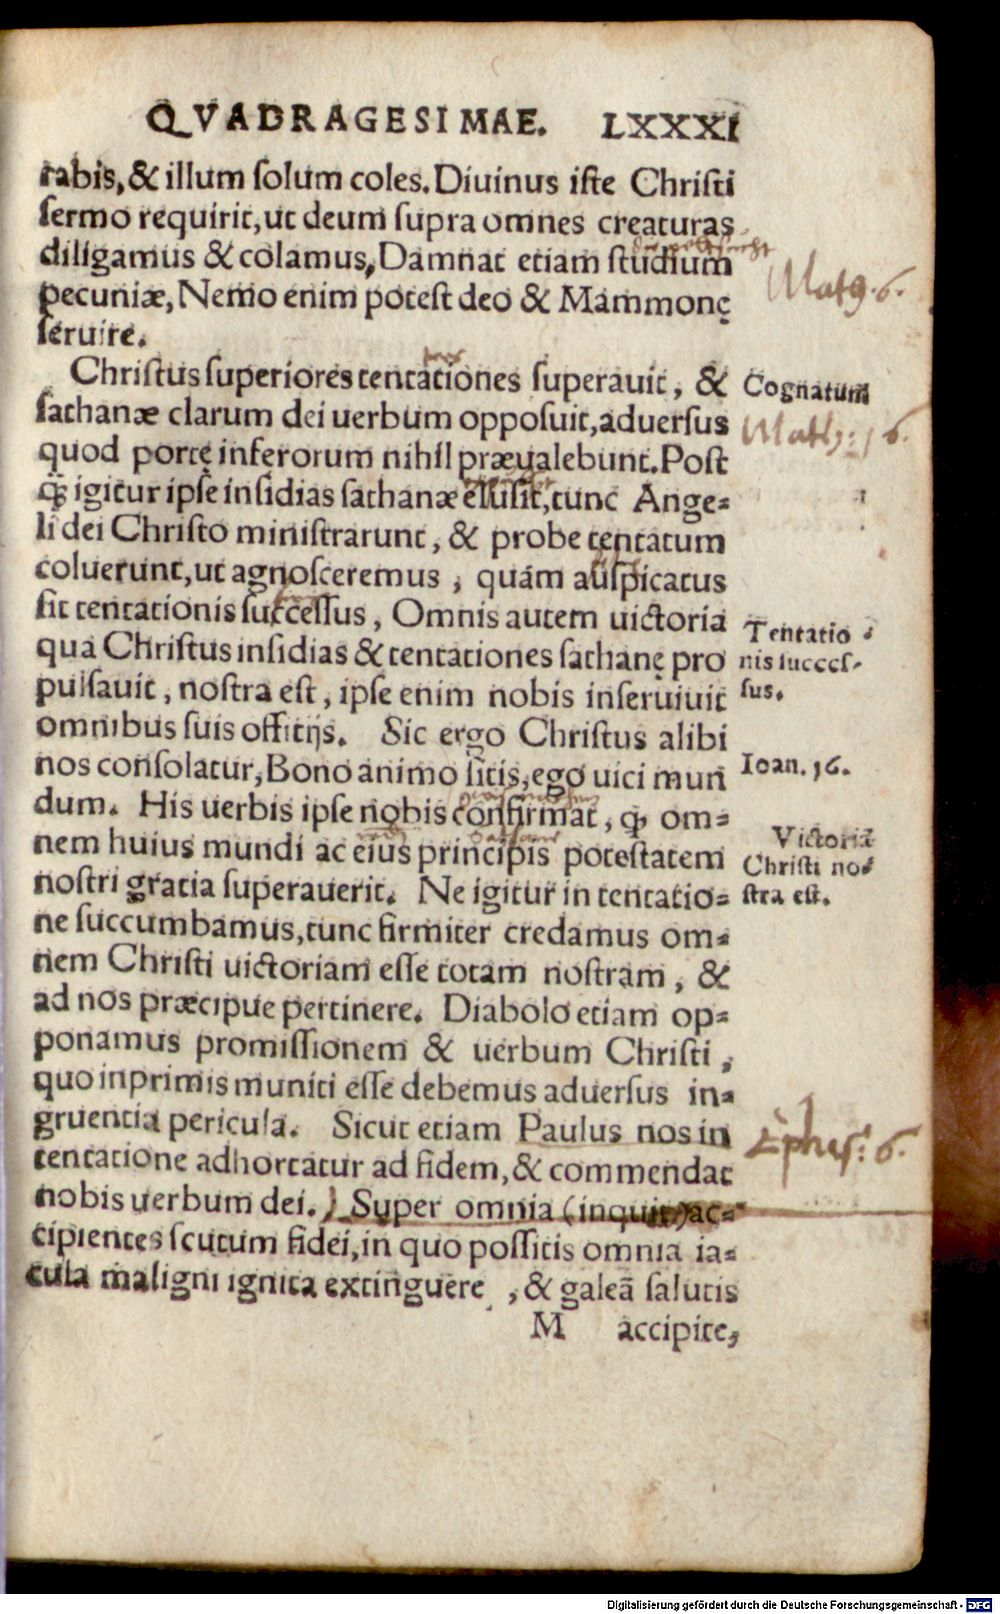 QVADRAGESIMAE. LXXXI
rabis, & illum ſolum coles. Diuinus iſte Chriſti
ſermo requirit, ut deum ſupra omnes creaturas
diligamus & colamus, Damnat etiam ſtudium
Math. 6.
pecuniæ, Nemo enim poteſt deo & Mammonę
ſeruire.
Chriſtus ſuperiores tentationes ſuperauit, &
Cognatum
ſathanæ clarum dei uerbum oppoſuit, aduerſus
Math: 16.
quod portę inferorum nihil præualebunt. Poſt
ꝙ̃ igitur ipſe inſidias ſathanæ eluſit, tunc Ange⸗
li dei Chriſto miniſtrarunt, & probe tentatum
coluerunt, ut agnoſceremus, quám auſpicatus
ſit tentationis ſucceſſus, Omnis autem uictoria
Tentatio⸗
qua Chriſtus inſidias & tentationes ſathanę pro
nis ſucceſ⸗
pulſauit, noſtra eſt, ipſe enim nobis inſeruiuit
ſus.
omnibus ſuis officijs. Sic ergo Chriſtus alibi
nos conſolatur, Bono animo ſitis, ego uici mun
Ioan. 16.
dum. His uerbis ipſe nobis confirmat, ꝙ om⸗
nem huius mundi ac eius principis poteſtatem
Victoria
Chriſti no⸗
noſtri gratia ſuperauerit. Ne igitur in tentatio⸗
ſtra eſt.
ne ſuccumbamus, tunc firmiter credamus om⸗
nem Chriſti uictoriam eſſe totam noſtram, &
ad nos præcipue pertinere. Diabolo etiam op⸗
ponamus promiſſionem & uerbum Chriſti,
quo inprimis muniti eſſe debemus aduerſus in⸗
gruentia pericula. Sicut etiam Paulus nos in
Ephes: 6.
tentatione adhortatur ad fidem, & commendat
nobis uerbum dei.) Super omnia (inquit) ac⸗
cipientes ſcutum fidei, in quo poſſitis omnia ia⸗
cula maligni ignita extinguere, & galeã ſalutis
M accipite,
Digitalisierung gefördert durch die Deutsche Forschungsgemeinschaft - DFG